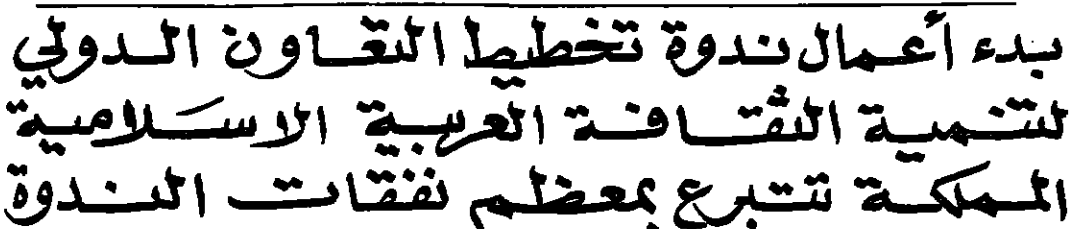 بدء أعمال ندوة تخطيط التعاون الدولي
لتنمية الثقافة العربية الاسلامية
المملكة تتبرع بمعظم نفقات الندوة